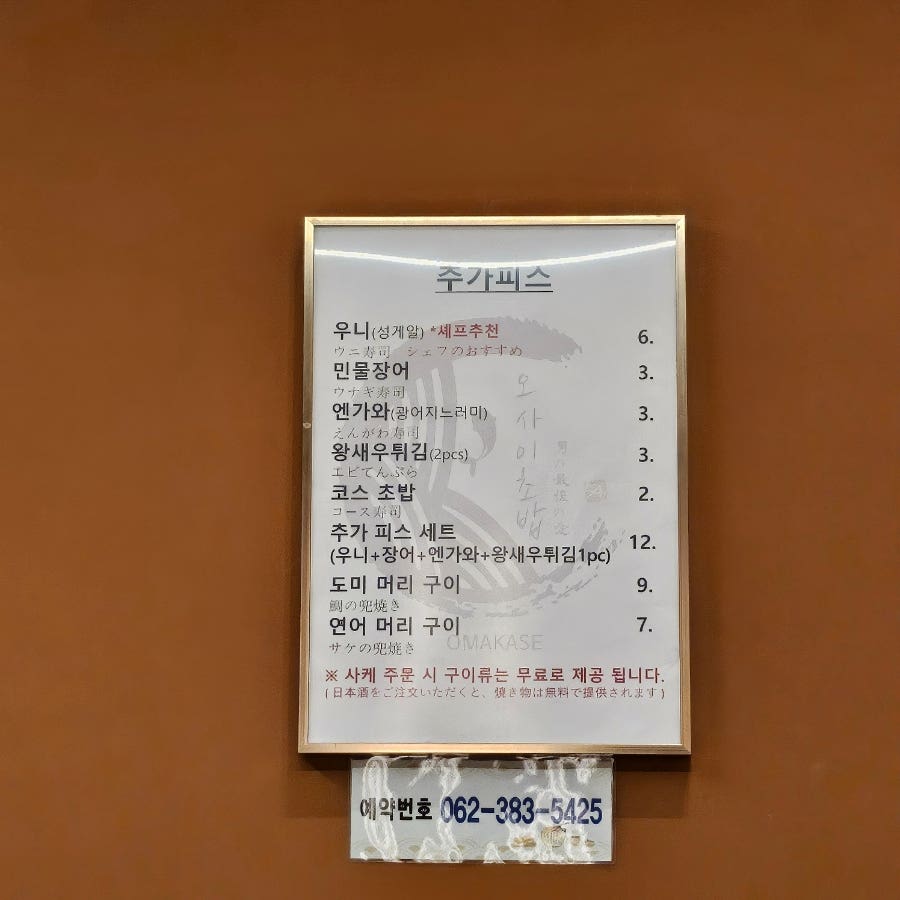 추가피스
우니(성게알) *셰프추천 6.
ウニ寿司 シェフのおすすめ
민물장어 3.
ウナギ寿司
엔가와(광어지느러미) 3.
えんがわ寿司
왕새우튀김(2pcs) 3.
エビてんぷら
코스 초밥 2.
コース寿司
추가 피스 세트
(우니+장어+엔가와+왕새우튀김1pc) 12.
도미 머리 구이 9.
鯛の兜焼き
연어 머리 구이 7.
サケの兜焼き
오사이초밥
OMAKASE
※ 사케 주문 시 구이류는 무료로 제공 됩니다.
(日本酒をご注文いただくと、焼き物は無料で提供されます)
예약번호 062-383-5425